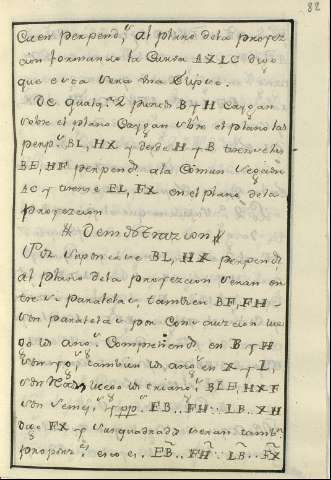 82
Caen perpend.s al plano dela proyec
cion formando la Curva AXLC digo
que esta sera una Elipse.
De qualq.a 2 puntos B y H Caygan
sobre el plano Caygan sobre el plano las
perp.s BL, HX y desde H y B tirense las
BE, HF perpend. a la Comun seccion
AC y tirense EL, FX en el plano dela
Proyeccion
Demostrazion
Por suponerse BL, HX perpend.
al plano dela proyeccion seran en
tre si paralelas, tambien BE, FH
son paralelas por Construccion lue
go los ang.s Comprehend. en B y H
son y tambien los ang.s en X y L,
son luego los triang.s BLE, HXF
son semej.s y pp. EB.. FH:: LB.. XH
EB.. FH:: LB.. FX